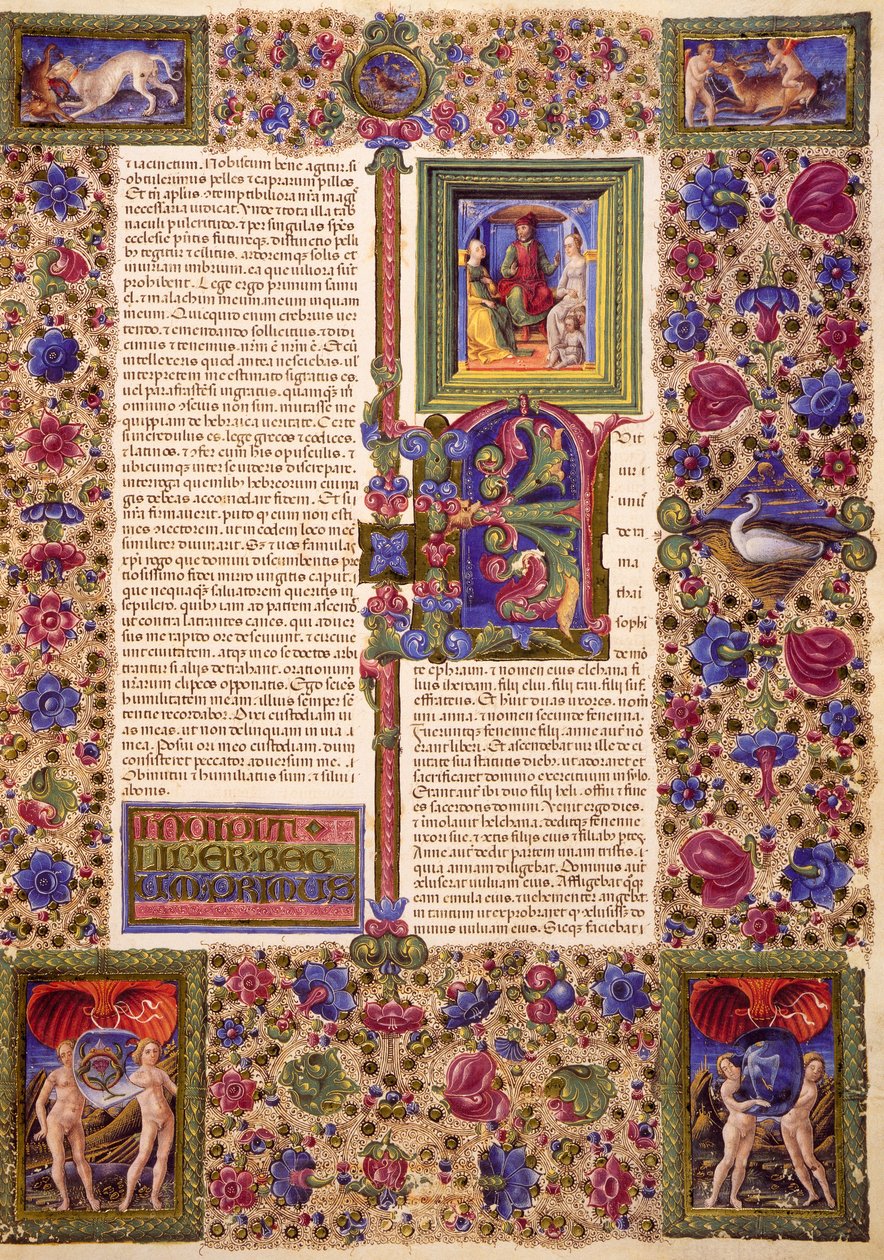 ⁊ iacinctum. Nobiscum bene agitur, si
obtulerimus pelles ⁊ caprarum pillos.
necessaria iudicat. Unde ⁊ tota illa tab̃
naculi pulcritudo, ⁊ per singulas spẽs
ecclesie pñtis futureqz distinctio pelli
bz tegitur ⁊ cilitiis, ardoremqz solis ⁊
iniuriam imbrium, ea que uiliora sũt
prohibent. Lege ergo primum samu
el, ⁊ malachim meum: meum inquam
meum. Quicquid enim crebrius uer
tendo, ⁊ emendando sollicitus, ⁊ didi
cimus ⁊ tenemus, nr̃m ẽ nr̃m. Et cũ
intellexeris quod antea nesciebas, ul'
interpretem me estimato si gratus es,
uel parafrastẽ si ingratus, quamqz m̃
omnino ↄscius non sim, mutasse me
quippiam de hebraica ueritate. Certe
si incredulus es, lege grecos ⁊ codices,
⁊ latinos, ⁊ ↄfer cum his opusculis, ⁊
ubicumqz inter se uideris discrepare,
interroga quemlibz hebreorum cui ma
gis debeas accomodare fidem. Et si
nr̃a firmauerit, puto qz eum non esti
mes ↄiectorem, ut in eodem loco me
similiter diuinarit. Sz ⁊ uos famulas
xp̃i rogo que domini discumbentis p̃
tiosissimo fidei miro ungitis caput,
que nequaqz saluatorem queritis in
sepulcro, quibz iam ad patrem ascendit
ut contra latrantes canes, qui aduer
sus me rapido ore deseuiunt, ⁊ circue
unt ciuitatem, atqz in eo se doctos arbi
trantur si aliis detrahant, orationum
urarum clipeos opponatis. Ego sciẽs
humilitatem meam, illius semper sẽ
tentie recordabor. Dixi custodiam ui
as meas, ut non delinquam in lingua
mea. Posui ori meo custodiam, dum
consisteret peccator aduersum me.
Obmutui ⁊ humiliatus sum, ⁊ silui a
bonis.
INCIPIT
LIBER·REG
UM·PRIMUS
Vit
uir i
unus
de ra
ma
thai
sophi
de mõ
te ephraim, ⁊ nomen eius elchana fi
lius ieroam, filii eliu, filii tau, filii suf,
effrateus. Et habuit duas uxores, nom̃
uni anna, ⁊ nomen secunde fenenna.
Fueruntqz fenenne filii, anne aut̃ nõ
erant liberi. Et ascendebat uir ille de ci
uitate sua statutis diebz, ut adoraret et
sacrificaret domino exercituum in sylo.
Erant aut̃ ibi duo filij hely, ofni et finee
es sacerdotes domini. Venit ergo dies,
⁊ imolauit helchana, deditqz fenenne
uxori sue, ⁊ cũctis filiis eius ⁊ filiabz ptes,
Anne aut̃ dedit partem unam tristis,
quia annam diligebat. Dominus aut̃
ↄcluserat uuluam eius. Affligebat qz
eam emula eius, ⁊ uehementer angebat
in tantum ut exprobraret qz ↄclusisset do
minus uuluam eius. Sicqz faciebat